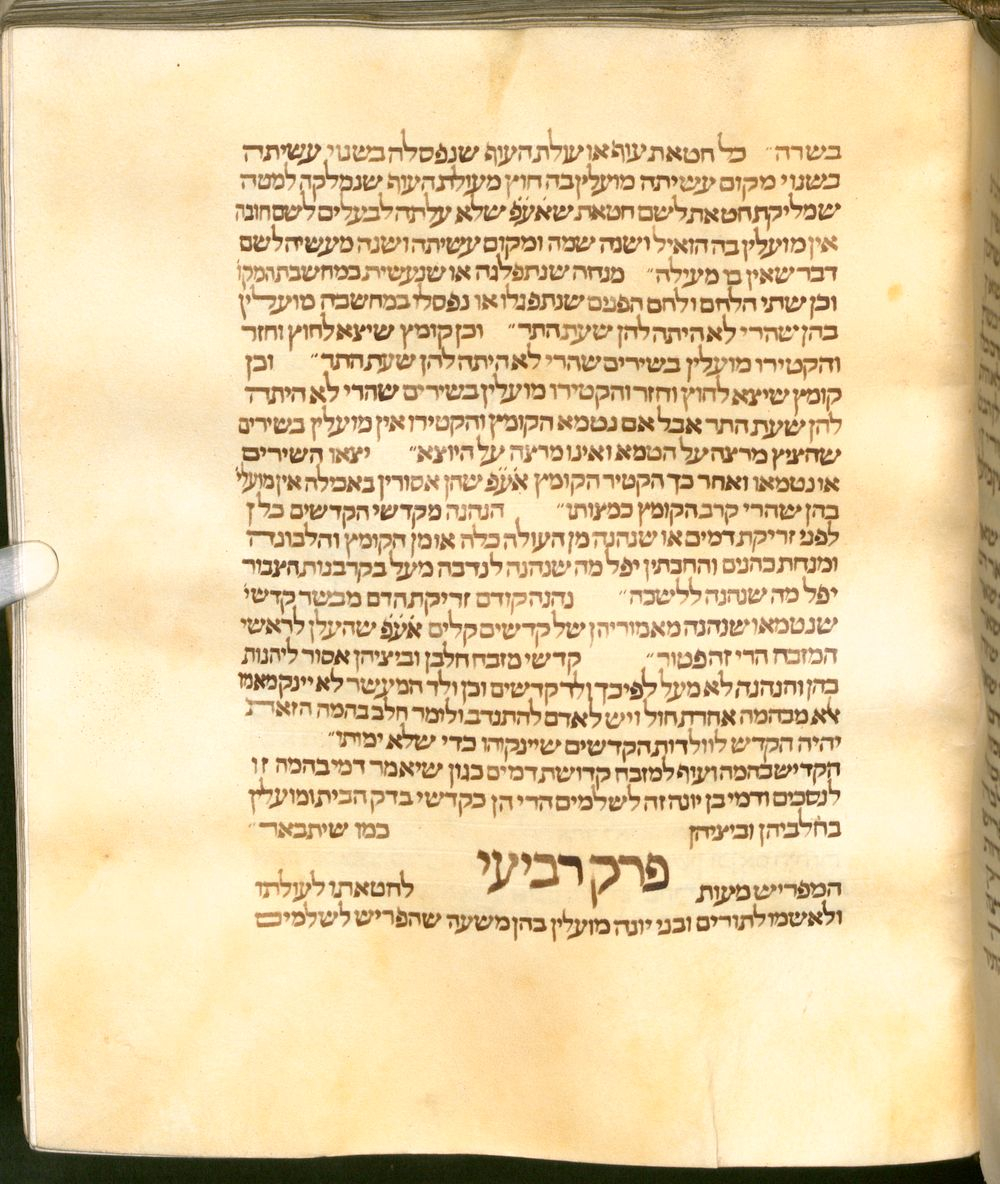 בשרה״ כל חטאת עוף או עולת העוף שנפסלה בשנוי עשיתה
כשנוי מקום עשיתה מועלין בה חוץ מעולת העוף שנמלקה למטה
שמליקת חטאת לשם חטאת שאע״פ שלא עלתה לבעלים לשם חובה
אין מועלין בה הואיל ושנה שמה ומקום עשיתה ושנה מעשיה לשם
דבר שאין בו מעילה״ מנחה שנתפגלה או שנעשית במחשבת המקו
וכן שתי הלחם ולחם הפנים שנתפגלו או נפסלו במחשבה מועלין
בהן שהרי לא היתה להן שעת התר״ וכן קומץ שיצא לחוץ וחזר
והקטירו מועלין בשירים שהרי לא היתה להן שעת התר״ וכן
קומץ שיצא לחוץ וחזר והקטירו מועלין בשירים שהרי לא היתה
להן שעת התר אבל אם נטמא הקומץ והקטירו אין מועלין בשירים
שהציץ מרצה על הטמא ואינו מרצה על היוצא״ יצאו השירים
או נטמאו ואחר כך הקטיר הקומץ אע״פ שהן אסורין באכילה אין מועלי
בהן שהרי קרב הקומץ כמצותו״ הנהנה מקדשי הקדשים כלן
לפני זריקת דמים או שנהנה מן העולה כלה או מן הקומץ והלבונה
ומנחת כהנים והחבתין יפל מה שנהנה לנדבה מעל בקרבנות הצבור
יפל מה שנהנה ללישכה״ נהנה קודם זריקת הדם מבשר קדשי
שנטמא או שנהנה מאמוריהן של קדשים קלים אע״פ שהעלן לראשי
המזבח הרי זה פטור״ קדשי מזבח חלבן וביציהן אסור ליהנות
בהן והנהנה לא מעל לפיכך ולד קדשים וכן ולד המעשר לא יינק מאמו
אלא מבהמה אחרת חול ויש לאדם להתנדב ולומר חלב בהמה הזאת
יהיה הקדש לוולדות הקדשים שיינקוהו כדי שלא ימותו״
הקדיש בהמה ועוף למזבח קדושת דמים כגון שיאמר דמי בהמה זו
לנסכים ודמי בן יונה זה לשלמים הרי הן כקדשי בדק הבית ומועלין
בחלביהן וביציהן כמו שיתבאר״
פרק רביעי
המפריש מעות לחטאתו לעולתו
ולאשמו לתורים ובני יונה מועלין בהן משעה שהפריש לשלמים